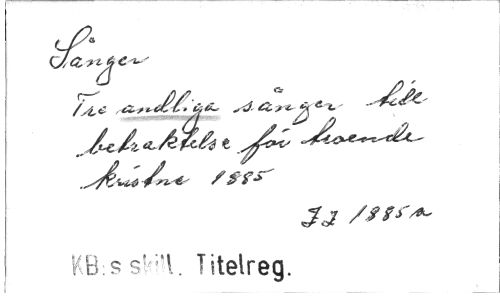 Sånger
Tre andliga sånger till
betraktelse för troende
kristne 1885
JJ 1885 a
KB:s skill. Titelreg.